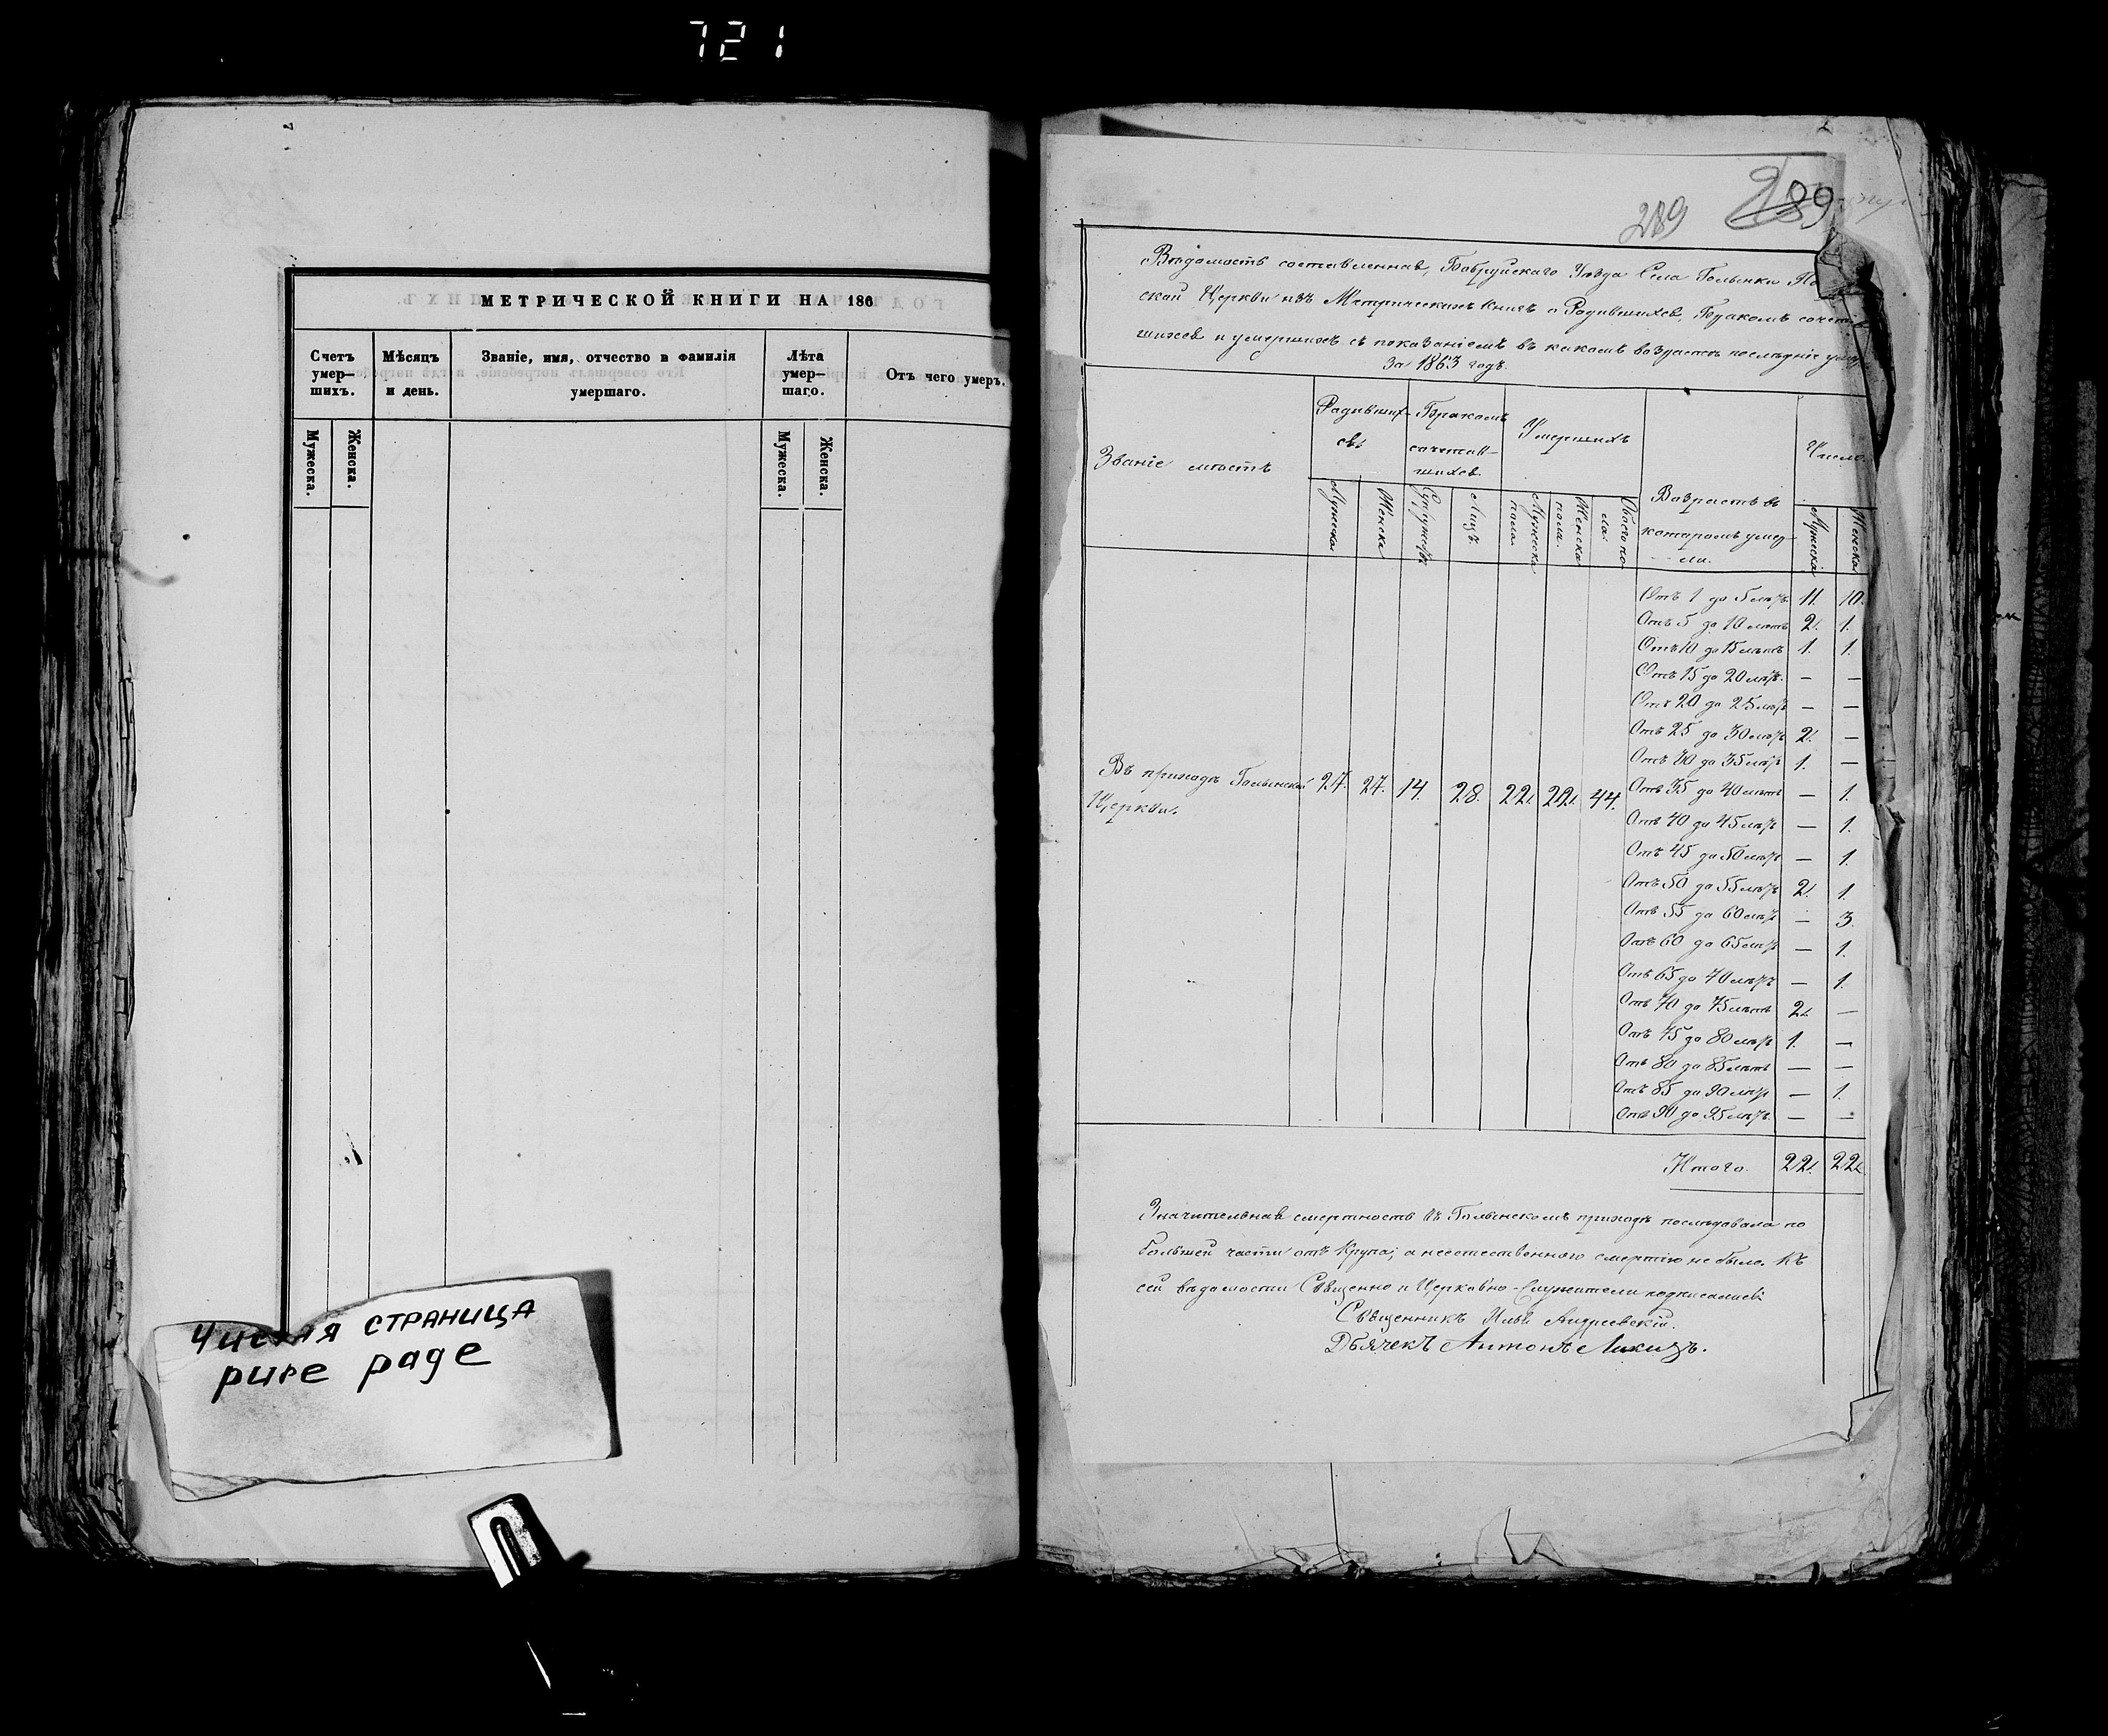 721
МЕТРИЧЕСКОЙ КНИГИ НА 186
Счетъ умер—шихъ.
Мѣсяцъ и день.
Званіе, имя, отчество и фамилія умершаго.
Лѣта умер—шаго.
Отъ чего умеръ.
Мужеска.
Женска.
Мужеска.
Женска.
Чистая СТРАНИЦА
pure page
289
289
Вѣдомость составленная, Бобруйскаго Уѣзда Села Голынки По
ской Церкви изъ Метрическихъ книгъ о Родившихся, Бракомъ сочетав
шихся и умершихъ съ показаніемъ въ какомъ возрастѣ послѣдніе умер
За 1863 годъ.
Званіе мѣстъ
Родивших-
ся
Бракомъ
сочетав-
шихся
Умершихъ
Возрастъ въ
которомъ умер-
ли.
Число.
Мужеска
Женска
Супружествъ
Лицъ.
Мужеска пола
Женска пола.
Обоего пола.
Мужеска
Женска
Въ приходѣ Голынской 27. 27. 14. 28. 22. 22. 44.
Церкви.
Отъ 1 до 5 лѣтъ 11. 10.
Отъ 5 до 10 лѣтъ 2. 1.
Отъ 10 до 15 лѣтъ 1. 1.
Отъ 15 до 20 лѣтъ. — —
Отъ 20 до 25 лѣтъ — —
Отъ 25 до 30 лѣтъ 2. —
Отъ 30 до 35 лѣтъ 1. —
Отъ 35 до 40 лѣтъ — 1.
Отъ 40 до 45 лѣтъ — 1.
Отъ 45 до 50 лѣтъ — 1.
Отъ 50 до 55 лѣтъ 2. 1.
Отъ 55 до 60 лѣтъ — 3.
Отъ 60 до 65 лѣтъ — 1.
Отъ 65 до 70 лѣтъ — 1.
Отъ 70 до 75 лѣтъ 2. —
Отъ 75 до 80 лѣтъ 1. —
Отъ 80 до 85 лѣтъ — —
Отъ 85 до 90 лѣтъ — 1.
Отъ 90 до 95 лѣтъ. — —
Итого. 22. 22.
Значительная смертность въ Голынскомъ приходѣ послѣдовала по
большей части отъ Крупа; а неестественного смертію не было. Къ
сей вѣдомости Священно и Церковно-Служители подписались:
Священникъ Илья Андреевскій.
Дьячекъ Антонъ